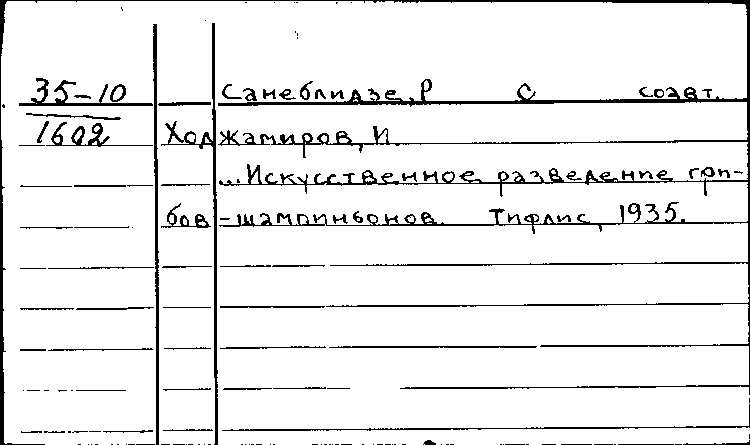 35-10 Санеблидзе, Р с соавт.
1602 Ходжамиров, И.
...Искусственное разведение гри-
бов-шампиньонов. Тифлис, 1935.